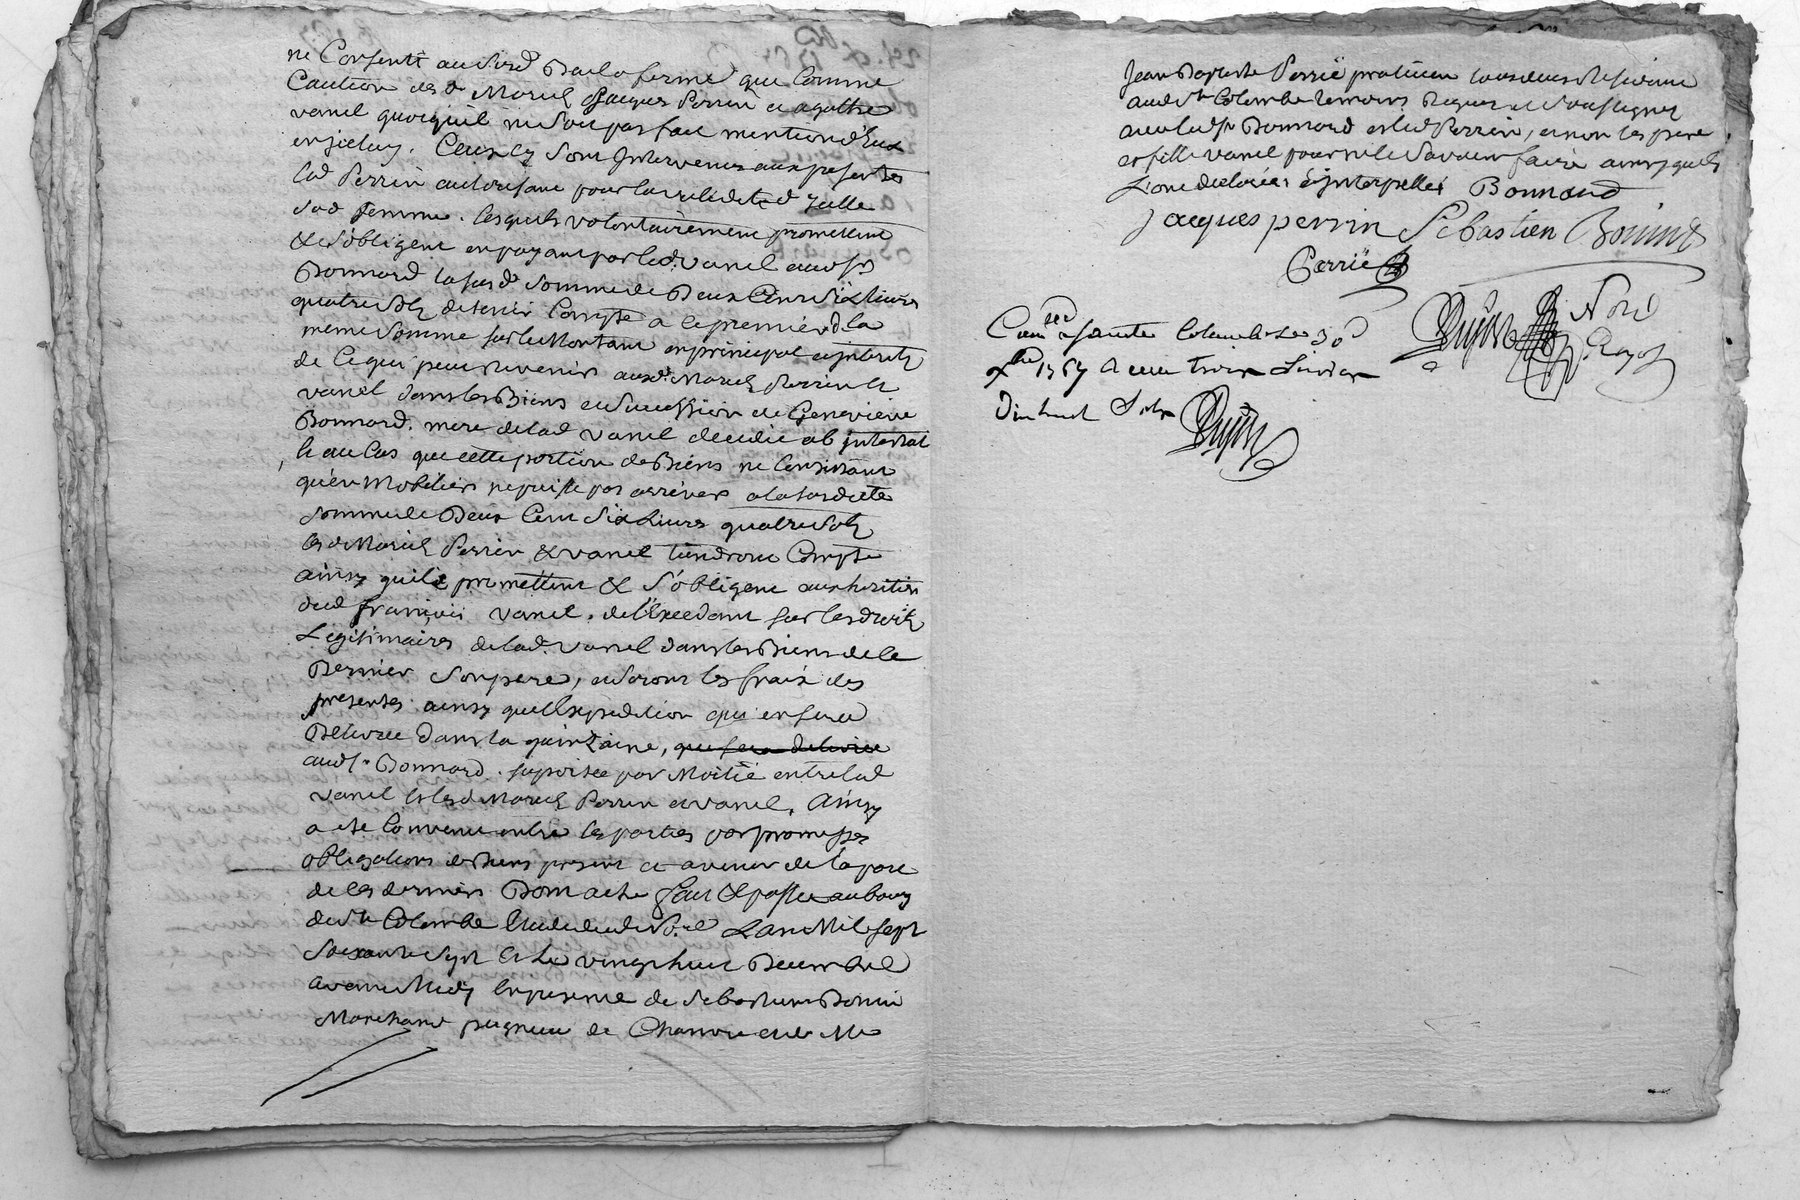 ne Consenti au Surd. Bail a ferme que Comme
Caution des d. Mariés Jacques Perrin et agathe
vanel quoiqu'il ne Soit pas fait mention d'Eux
en jceluy. Ceux cy Sont Intervenus aux presentes
led Perrin autorisant pour la validité d'jcelle
Sad femme. lesquels volontairement promettent
& S'obligent en payant par led. vanel aud Sr
Bonnard la susd. Somme de Deux Cent Six Livres
quatre Sols de tenir Compte a ce premier de la
meme Somme sur le Montant en principal et interets
de Ce qui peut Revenir auxd. Mariés Perrin et
vanel dans les Biens et Succession de Genevieve
Bonnard. mere de lad vanel decedée ab jntestat
et au Cas que cette portion de Biens ne Consistant
qu'en Mobiliers ne puisse pas arriver a la susdite
Somme de Deux Cent Six Livres quatre Sols
les d. Mariés Perrin & vanel tiendront Compte
ainsy qu'ils promettent & S'obligent aux heritiers
dud françois vanel. de l'Excedant sur les droits
Légitimaires de lad. vanel dans les Biens de Ce
Dernier Son pere, et Seront les fraix des
presentes ainsy que l'Expedition qui en sera
Délivrée dans la quinzaine, que sera delivrée
aud Sr. Bonnard. suportée par Moitié entre led
vanel et les d. Mariés Perrin et vanel. Ainsy
a eté Convenu entre les parties par promesses
obligations de Biens present et avenir de la part
de Ces derniers Dont acte fait & passé au bourg
de Ste Colombe Etude dud No.re L'an Mil sept
Soixante Sept et Le vingt huit Decembre
avant Midy En presence de Sebastien Bonin
Marchand peigneur de Chanvre et de Me
Jean Baptiste Perrië praticien tous deux Residants
aud Ste Colombe temoins Requis et Soussignez
avec led Sr Bonnard et led Perrin, et non les pere
et fille vanel pour ne le Savoir faire ainsy qu'ils
L'ont declarés Enquis & Interpellés Bonnard
jacques perrin Sebastien Bonin
Perrië
Nore
Royal
Con.lé a Sainte Colombe Le 30
xbre 1767 Reçu trois Livres
Dix huit Sols